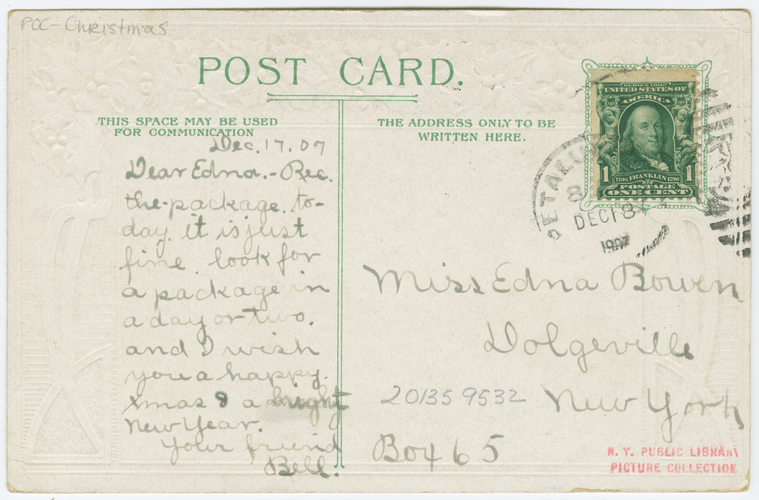 POC - Christmas
POST CARD.
THIS SPACE MAY BE USED
FOR COMMUNICATION
THE ADDRESS ONLY TO BE
WRITTEN HERE.
Dec. 17. 07
Dear Edna. - Rec.
the package to-
day it is just
fine look for
a package in
a day or two.
and I wish
you a happy.
xmas & a bright
New Year.
Your friend
Bell.
SERIES 1902
UNITED STATES OF
AMERICA
1 1
1706 FRANKLIN 1790
POSTAGE
ONE CENT
PETALU
8
DEC 18
1907
Miss Edna Bowen
Dolgeville
New York
Box 65
20135 9532
N. Y. PUBLIC LIBRARY
PICTURE COLLECTION